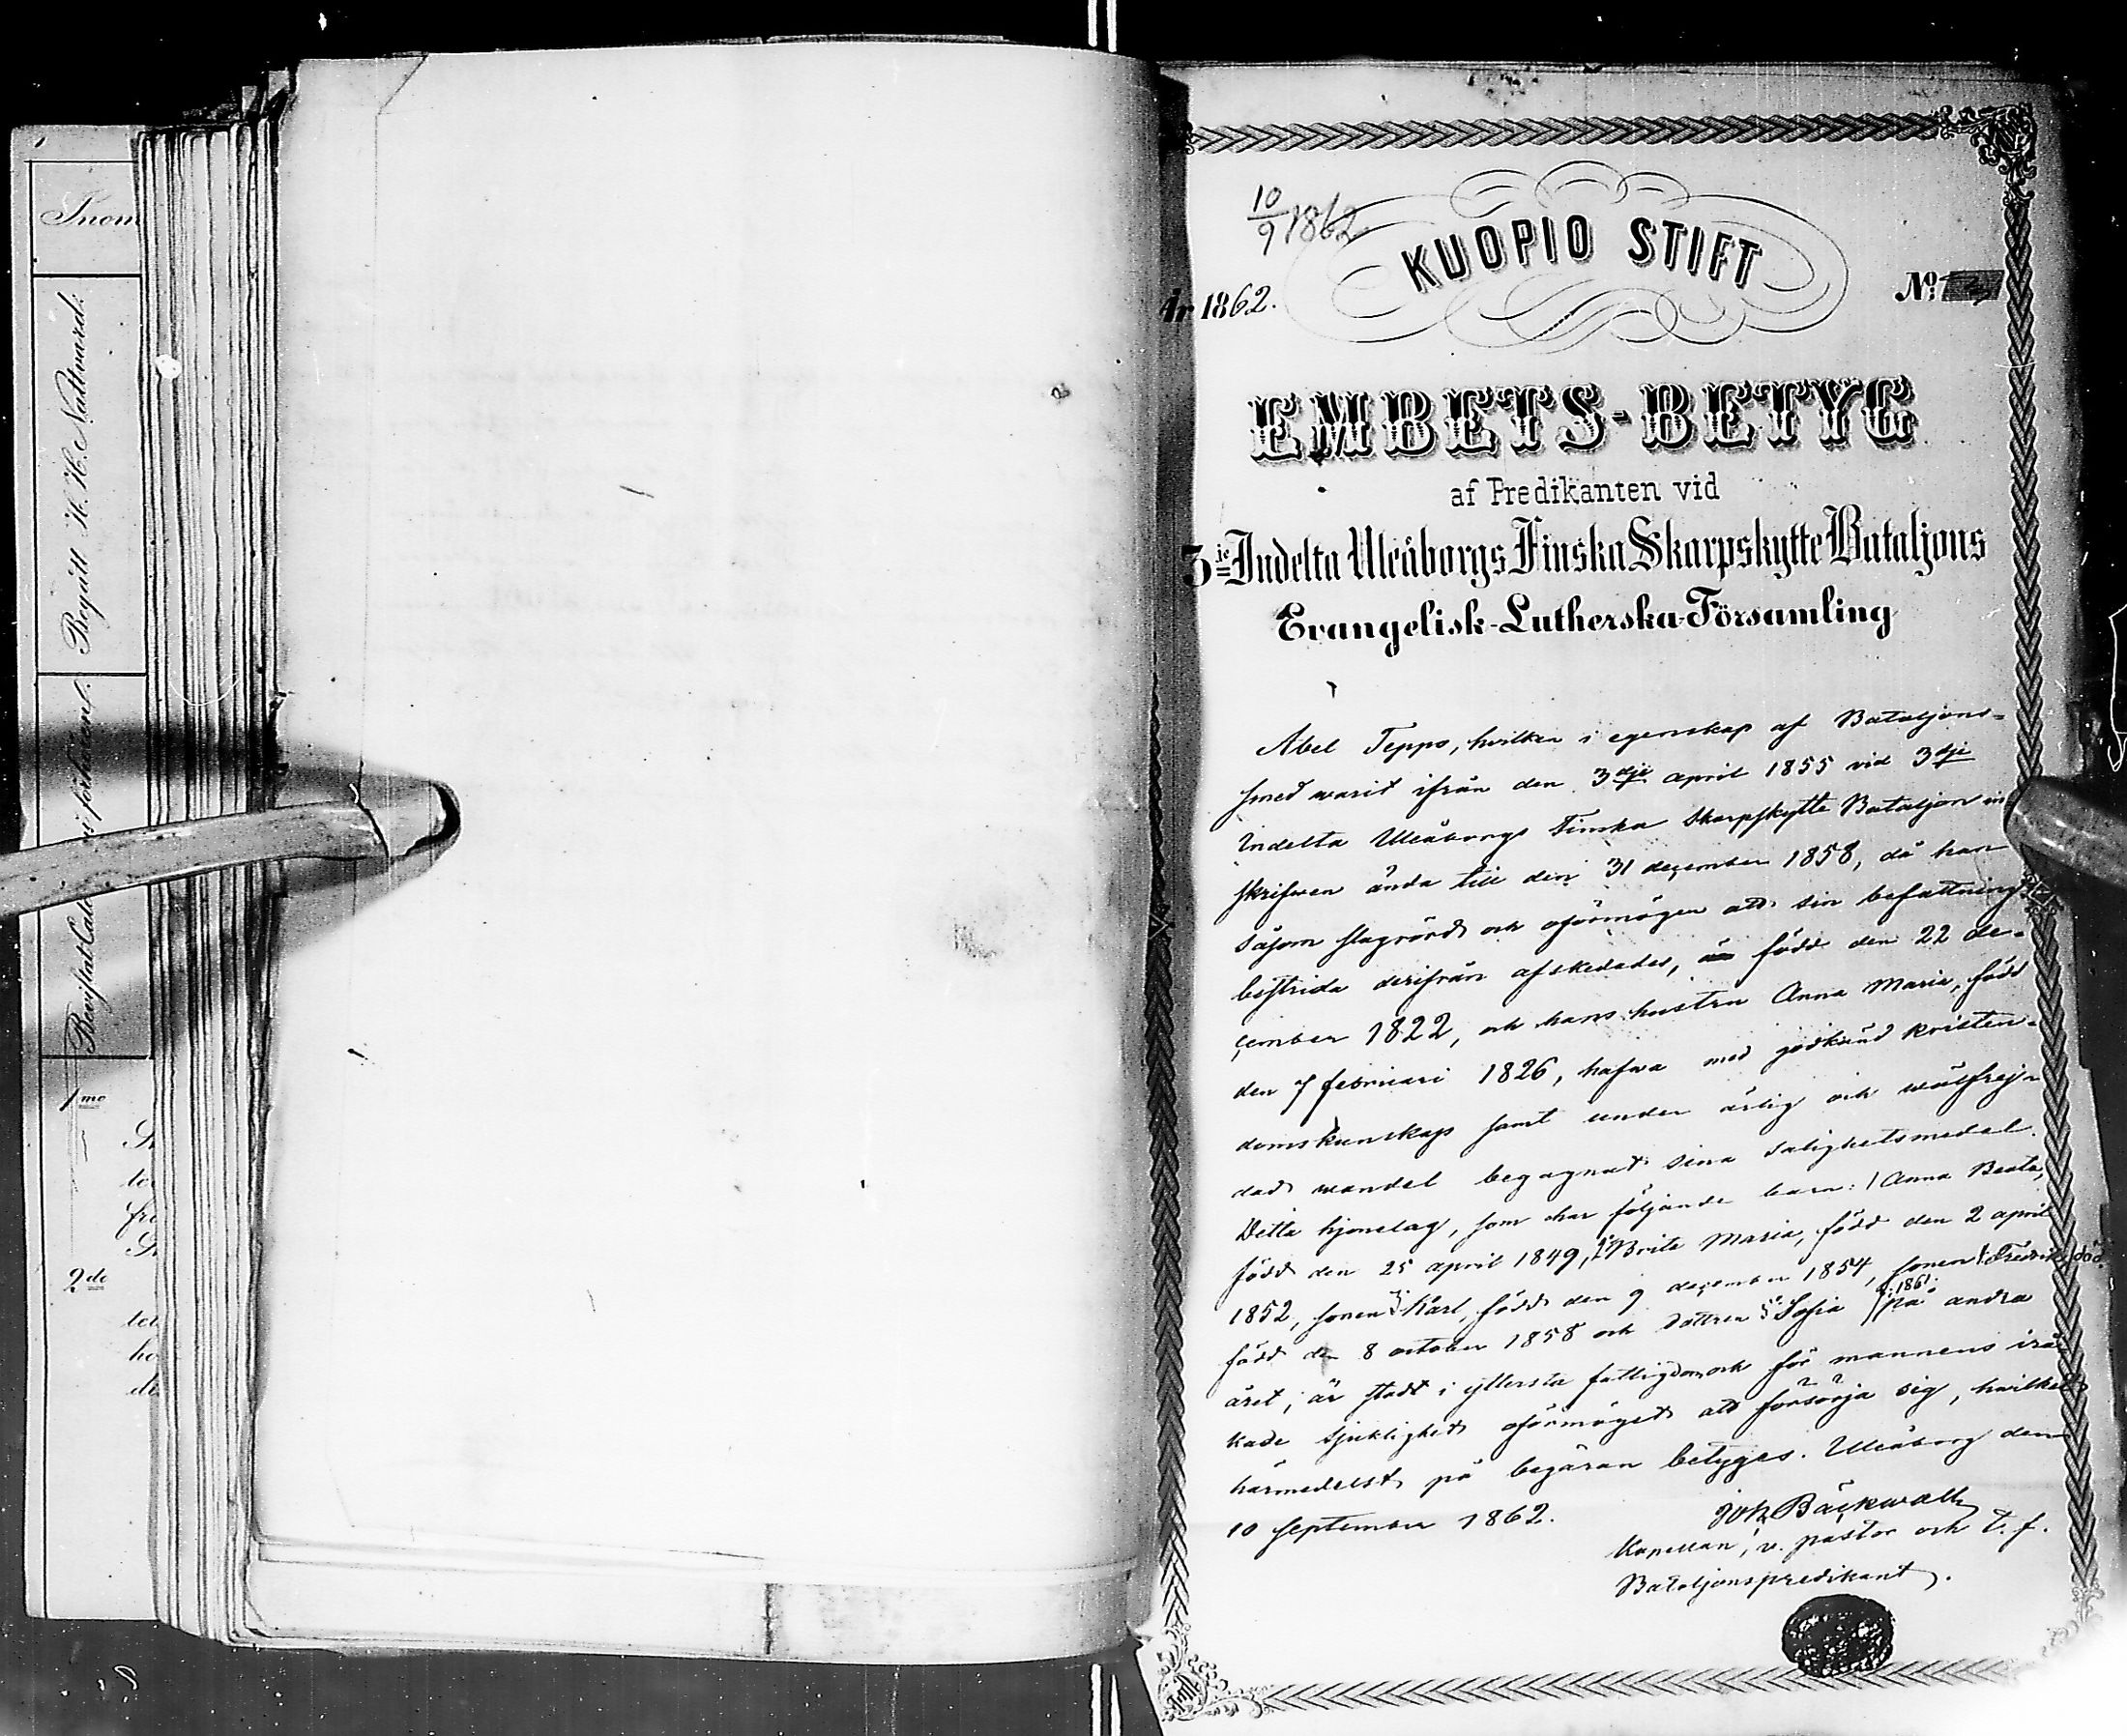 Inom
Begått H. H. Nattvard.
1mo
2do
10/9 1862
KUOPIO STIFT
År 1862.
No:
EMBETS-BETYG
af Predikanten vid
3je Indelta Uleåborgs Finska Skarpskytte Bataljons
Evangelisk-Lutherska-Församling
Abel Teppo, hvilken i egenskap af Bataljons-
smed warit ifrån den 3dje april 1855 vid 3dje
Indelta Uleåborgs Finska Skarpskytte Bataljon in-
skrifwen ända till den 31 december 1858, då han
såsom slagrörd och oförmögen att sin befattning
bestrida derifrån afskedades, är född den 22 de-
cember 1822, och hans hustru Anna Maria, född
den 7 februari 1826, hafwa med godkänd kristen-
domskunskap samt under ärlig och wälfrej-
dad wandel begagnat sina salighetsmedel.
Detta hjonelag, som har följande barn: 1 Anna Beata,
född den 25 april 1849, 2 Brita Maria, född den 2 april
1852, sonen 3 Karl, född den 9 december 1854, sonen 4 Fredrik, död
1861.
född den 8 october 1858 och dottren 5 Sofia på andra
året, är stadt i yttersta fattigdom och för mannens irå-
kade sjuklighet oförmöget att försörja sig, hwilket
härmedelst på begäran betyges. Uleåborg den
10 september 1862.
Joh. Bäckwall
Kapellan, v. pastor och t. f.
Bataljonspredikant.